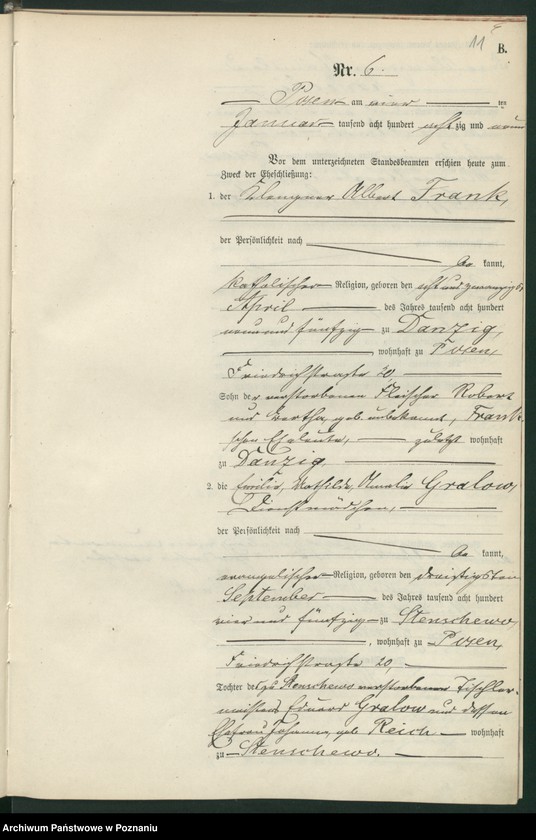 11
B.
Nr. 6.
Posen am vier ten
Januar tausend acht hundert achtzig und neun
Vor dem unterzeichneten Standesbeamten erschien heute zum
Zweck der Eheschließung:
1. der Klempner Albert Frank,
der Persönlichkeit nach
be kannt,
katholischer Religion, geboren den acht und zwanzigsten
April des Jahres tausend acht hundert
neun und fünfzig zu Danzig,
, wohnhaft zu Posen,
Friedrichstraße 20
Sohn der verstorbenen Fleischer Robert
und Bertha, geb. unbekannt, Frank
schen Eheleute, zuletzt wohnhaft
zu Danzig.
2. die Emilie, Mathilde, Amalie Gralow,
Dienstmädchen,
der Persönlichkeit nach
be kannt,
evangelischer Religion, geboren den dreißigsten
September des Jahres tausend acht hundert
vier und fünfzig zu Stenschewo,
, wohnhaft zu Posen,
Friedrichstraße 20,
Tochter des zu Stenschewo verstorbenen Tischler-
meisters Eduard Gralow und dessen
Ehefrau Johanna, geb. Reich wohnhaft
zu Stenschewo.
Archiwum Państwowe w Poznaniu